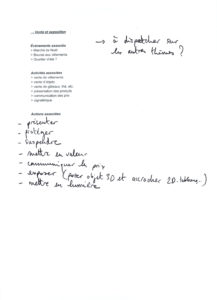 ... vente et exposition
→ à dispatcher sur
les autres thèmes ?
Evénements associés
• Marché de Noël
• Bourse aux vêtements
• Quartier d'été ?
Activités associées
• vente de vêtements
• vente d'objets
• vente de gâteaux, thé, etc.
• présentation des produits
• communication des prix
• signalétique
Actions associées
- présenter
- protéger
- suspendre
- mettre en valeur
- communiquer le prix
- exposer (poser objet 3D et accrocher 2D. tableau..)
- mettre en lumière